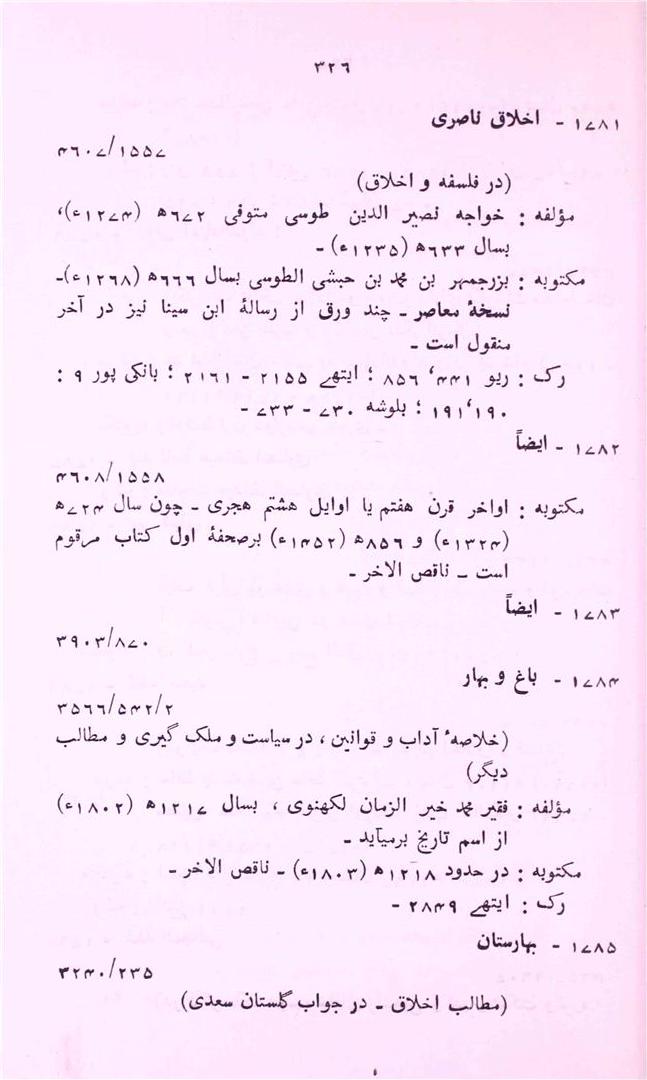 ۳۲۶
۱۷۸۱ - اخلاق ناصری
۴۶۰۷/۱۵۵۷
(در فلسفه و اخلاق)
مؤلفه : خواجه نصیر الدین طوسی متوفی ۶۷۲ھ (۱۲۷۴ء)،
بسال ۶۳۳ھ (۱۲۳۵ء) -
مکتوبه : بزرجمهر بن محمد بن حبشی الطوسی بسال ۶۶۶ھ (۱۲۶۸ء)-
نسخهٔ معاصر - چند ورق از رسالهٔ ابن سینا نیز در آخر
منقول است -
رک : ریو ۴۴۱، ۸۵۶ ؛ ایتهے ۲۱۵۵ - ۲۱۶۱ ؛ بانکی پور ۹ :
۱۹۰، ۱۹۱ ؛ بلوشه ۷۳۰ - ۷۳۳ -
۱۷۸۲ - ایضاً
۴۶۰۸/۱۵۵۸
مکتوبه : اواخر قرن هفتم یا اوایل هشتم هجری - چون سال ۷۲۴ھ
(۱۳۲۴ء) و ۸۵۶ھ (۱۴۵۲ء) برصحفهٔ اول کتاب مرقوم
است - ناقص الاخر -
۱۷۸۳ - ایضاً
۳۹۰۳/۸۷۰
۱۷۸۴ - باغ و بهار
۳۵۶۶/۵۴۲/۲
(خلاصهٔ آداب و قوانین ، در سیاست و ملک گیری و مطالب
دیگر)
مؤلفه : فقیر محمد خیر الزمان لکهنوی ، بسال ۱۲۱۷ھ (۱۸۰۲ء)
از اسم تاریخ برمیآید -
مکتوبه : در حدود ۱۲۱۸ھ (۱۸۰۳ء) - ناقص الاخر -
رک : ایتهے ۲۸۴۹ -
۱۷۸۵ - بهارستان
۳۲۴۰/۲۳۵
(مطالب اخلاق - در جواب گلستان سعدی)